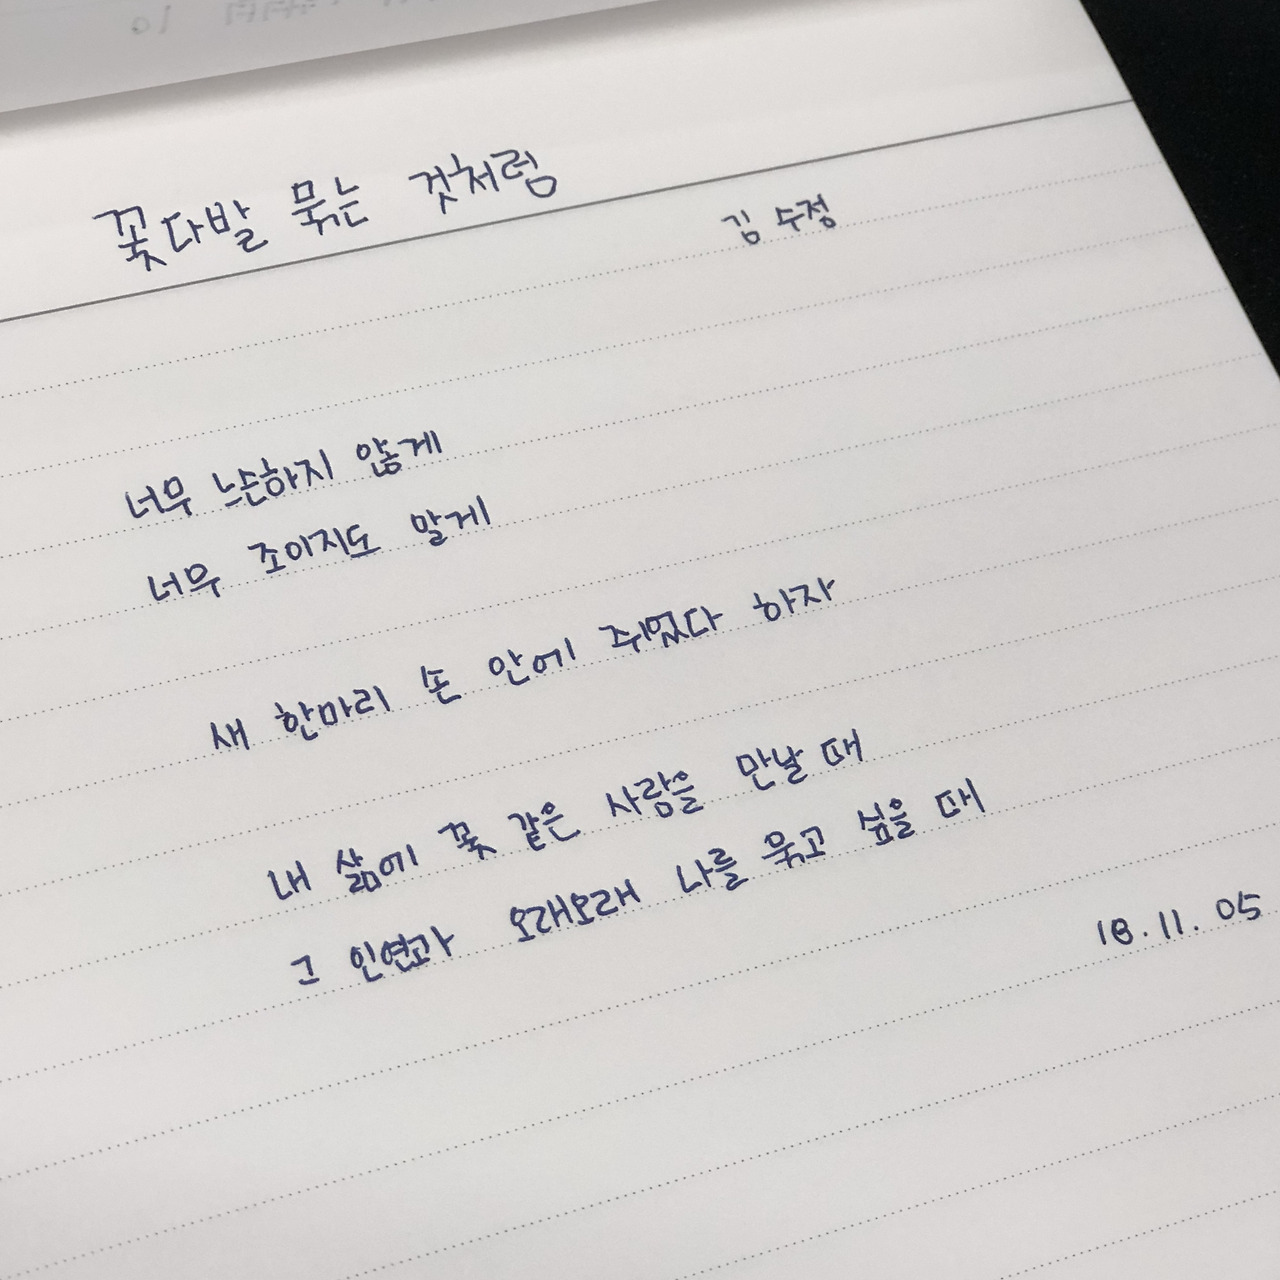 꽃다발 묶는 것처럼
김 수정
너무 느슨하지 않게
너무 조이지도 말게
새 한마리 손 안에 쥐었다 하자
내 삶에 꽃 같은 사람을 만날 때
그 인연과 오래오래 나를 묶고 싶을 때
18.11.05